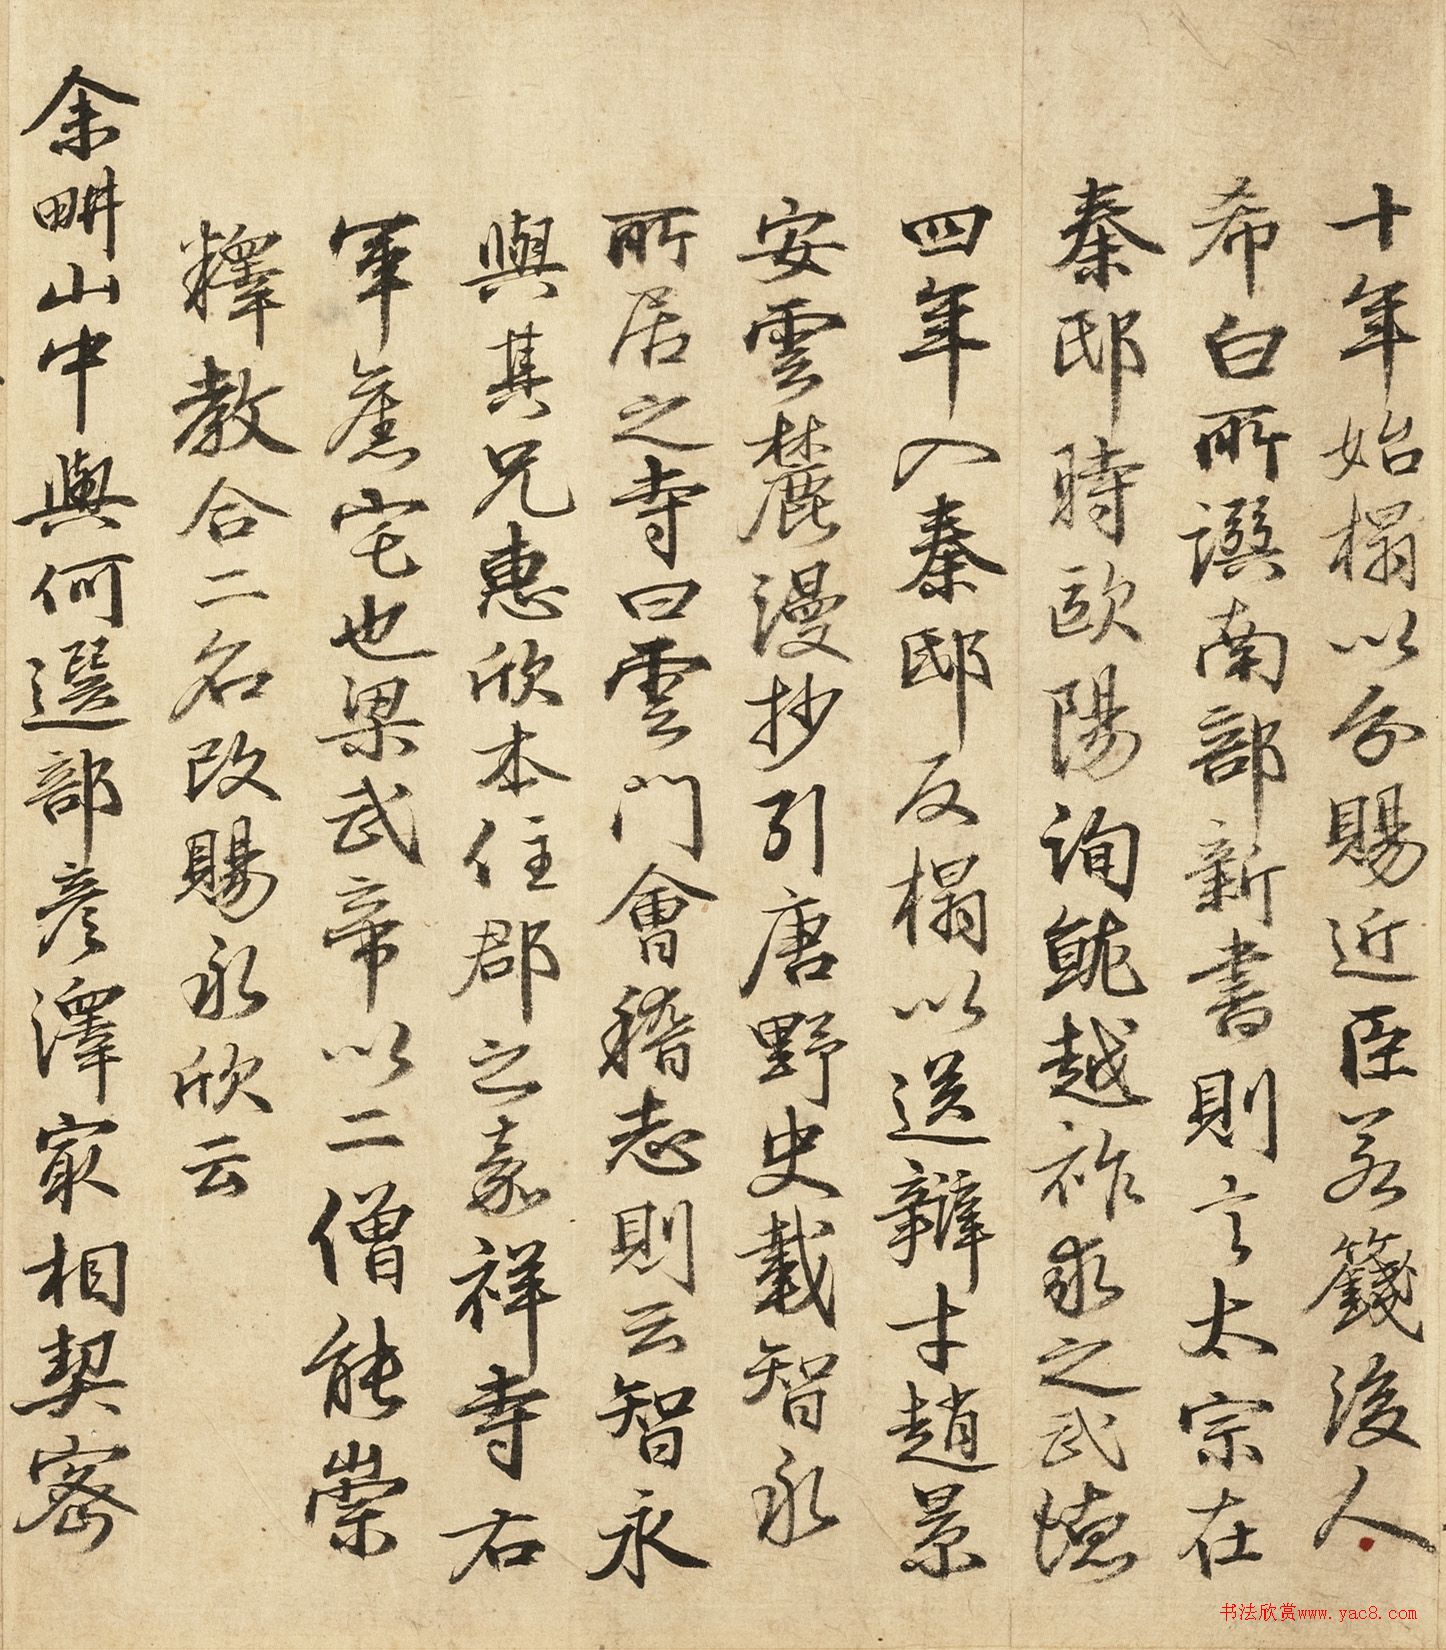 十年始榻以分賜近臣若籛後人
希白所譔南部新書則言太宗在
秦邸時歐陽詢就越祚求之武德
四年入秦邸反榻以送辯才趙景
安雲麓漫抄引唐野史載智永
所居之寺曰雲門會稽志則云智永
與其兄惠欣本住郡之嘉祥寺右
軍舊宅也梁武帝以二僧能崇
釋教合二名改賜永欣云
余畊山中與何選部彥澤㝡相契密
书法欣赏www.yac8.com